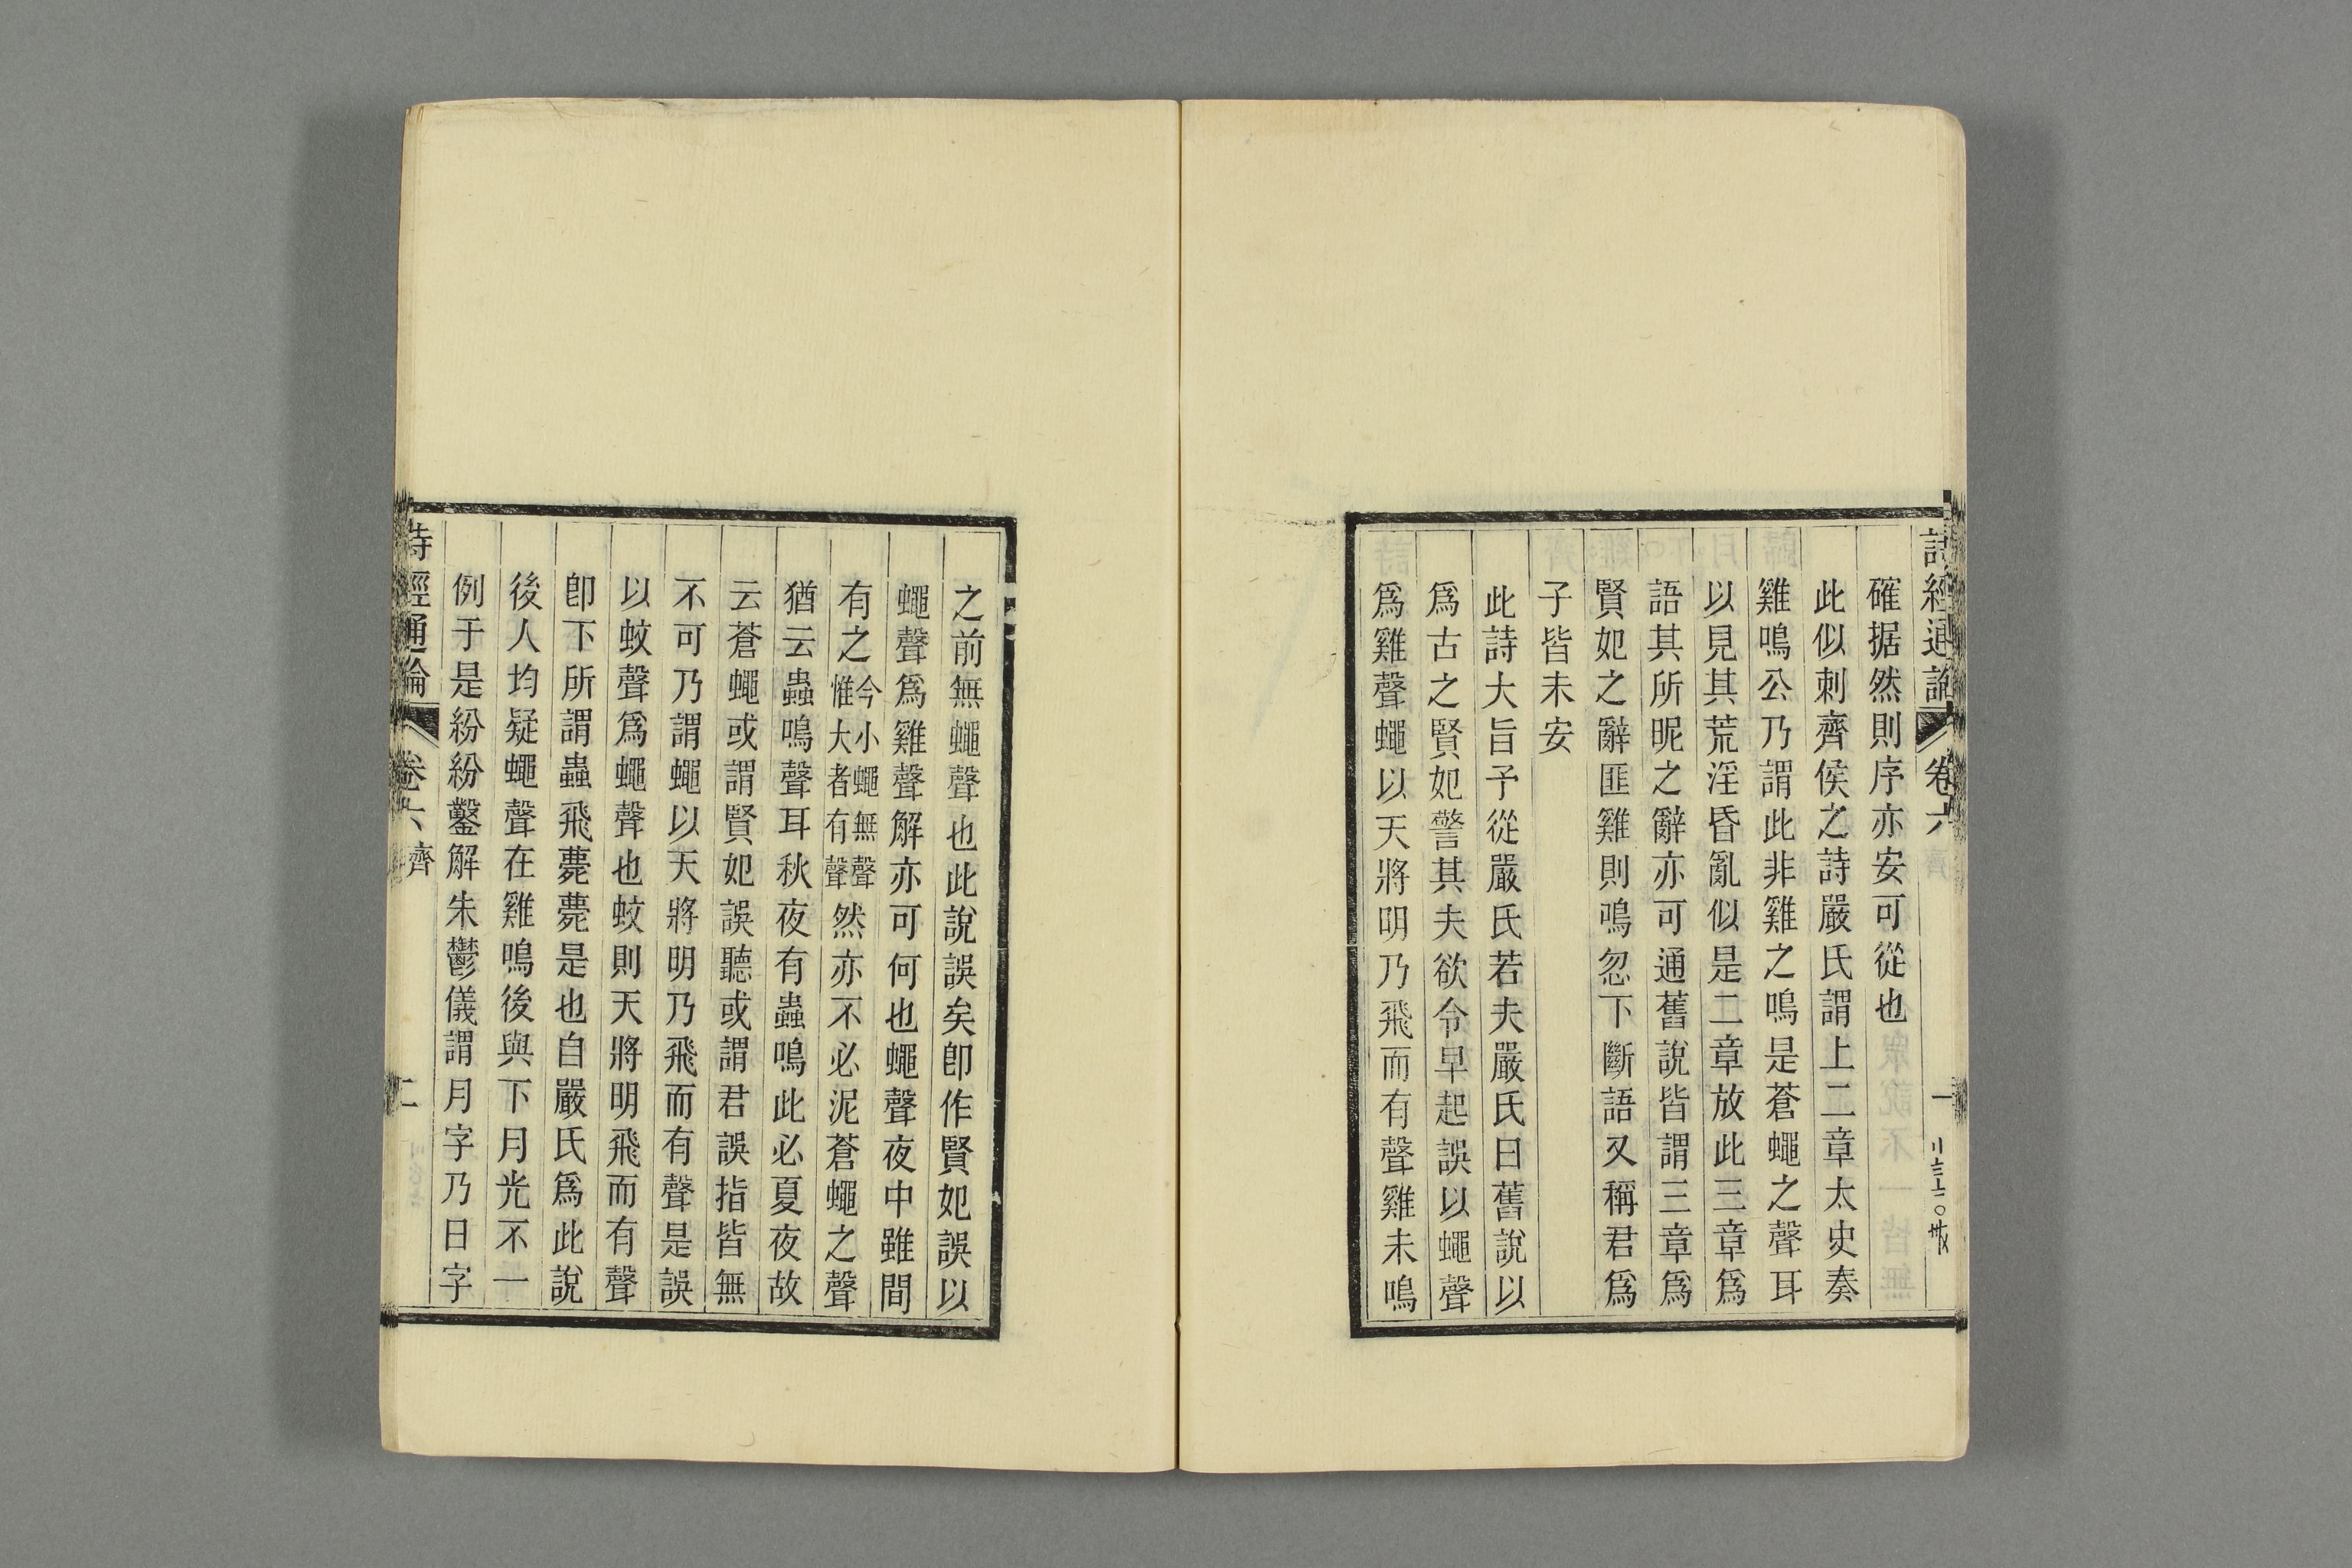 詩經通論 卷六 一
確据然則序亦安可從也
此似刺齊侯之詩嚴氏謂上二章太史奏
雞鳴公乃謂此非雞之鳴是蒼蠅之聲耳
以見其荒淫昏亂似是二章放此三章爲
語其所昵之辭亦可通舊說皆謂三章爲
賢妃之辭匪雞則鳴忽下斷語又稱君爲
子皆未安
此詩大旨予從嚴氏若夫嚴氏曰舊說以
爲古之賢妃警其夫欲令早起誤以蠅聲
爲雞聲蠅以天將明乃飛而有聲雞未鳴
之前無蠅聲也此說誤矣卽作賢妃誤以
蠅聲爲雞聲解亦可何也蠅聲夜中雖間
有之今小蠅無聲惟大者有聲然亦不必泥蒼蠅之聲
猶云蟲鳴聲耳秋夜有蟲鳴此必夏夜故
云蒼蠅或謂賢妃誤聽或謂君誤指皆無
不可乃謂蠅以天將明乃飛而有聲是誤
以蚊聲爲蠅聲也蚊則天將明飛而有聲
卽下所謂蟲飛薨薨是也自嚴氏爲此說
後人均疑蠅聲在雞鳴後與下月光不一
例于是紛紛鑿解朱鬱儀謂月字乃日字
詩經通論 卷六 齊 二